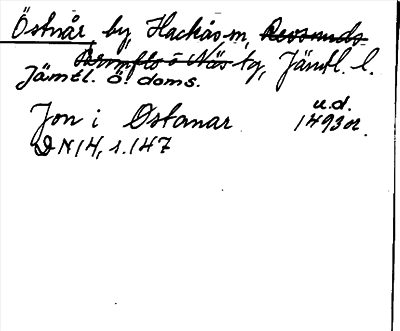 Östnår by, Hackås sn, Revsunds
Brunflo o Näs tg, Jämtl. l.
Jämtl. ö. doms.
Jon i Ostanar u.d. 1493 or.
DN 14, s. 147